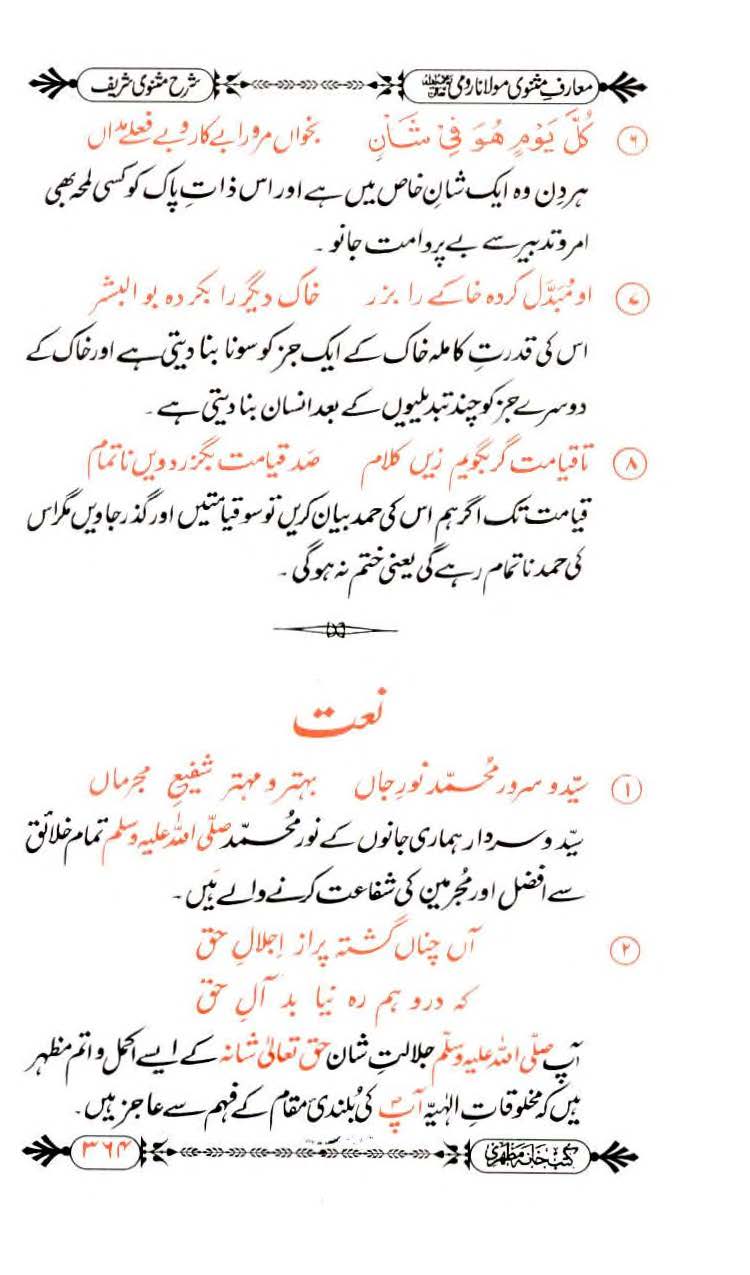 معارفِ مثنوی مولانا رومی شرح مثنوی شریف
۶ كُلَّ يَوْمٍ هُوَ فِيْ شَاْنٍ بخواں مرورا بے کار و بے فعلے مداں
ہر دِن وہ ایک شانِ خاص میں ہے اور اس ذاتِ پاک کو کسی لمحہ بھی
امر و تدبیر سے بے پروا مت جانو ۔
۷ او مُبَدَّل کردہ خاکے را بزر خاک دیگر را بکردہ بو البشر
اس کی قدرتِ کاملہ خاک کے ایک جز کو سونا بنا دیتی ہے اور خاک کے
دوسرے جز کو چند تبدیلیوں کے بعد انسان بنا دیتی ہے ۔
۸ تا قیامت گر بگویم زیں کلام صَد قیامت بگزرد ویں ناتمام
قیامت تک اگر ہم اس کی حمد بیان کریں تو سو قیامتیں اور گذر جاویں مگر اس
کی حمد ناتمام رہے گی یعنی ختم نہ ہو گی ۔
نعت
۱ سیّد و سرور مُحمّد نورِ جاں بہتر و مہتر شفیعِ مجرماں
سیّد و سردار ہماری جانوں کے نور مُحمّد صلّی اللہ علیہ وسلم تمام خلائق
سے افضل اور مُجرمین کی شفاعت کرنے والے ہَیں ۔
۲ آں چناں گشتہ پُر از اِجلالِ حق
کہ درو ہم رہ نیا بد آلِ حق
آپ صلّی اللہ علیہ وسلّم جلالتِ شان حق تعالیٰ شانہ کے ایسے اکمل و اتم مظہر
ہیں کہ مخلوقاتِ الٰہیّہ آپؐ کی بُلندیٔ مقام کے فہم سے عاجز ہیں ۔
کتب خانہ مظہری ۳۶۴